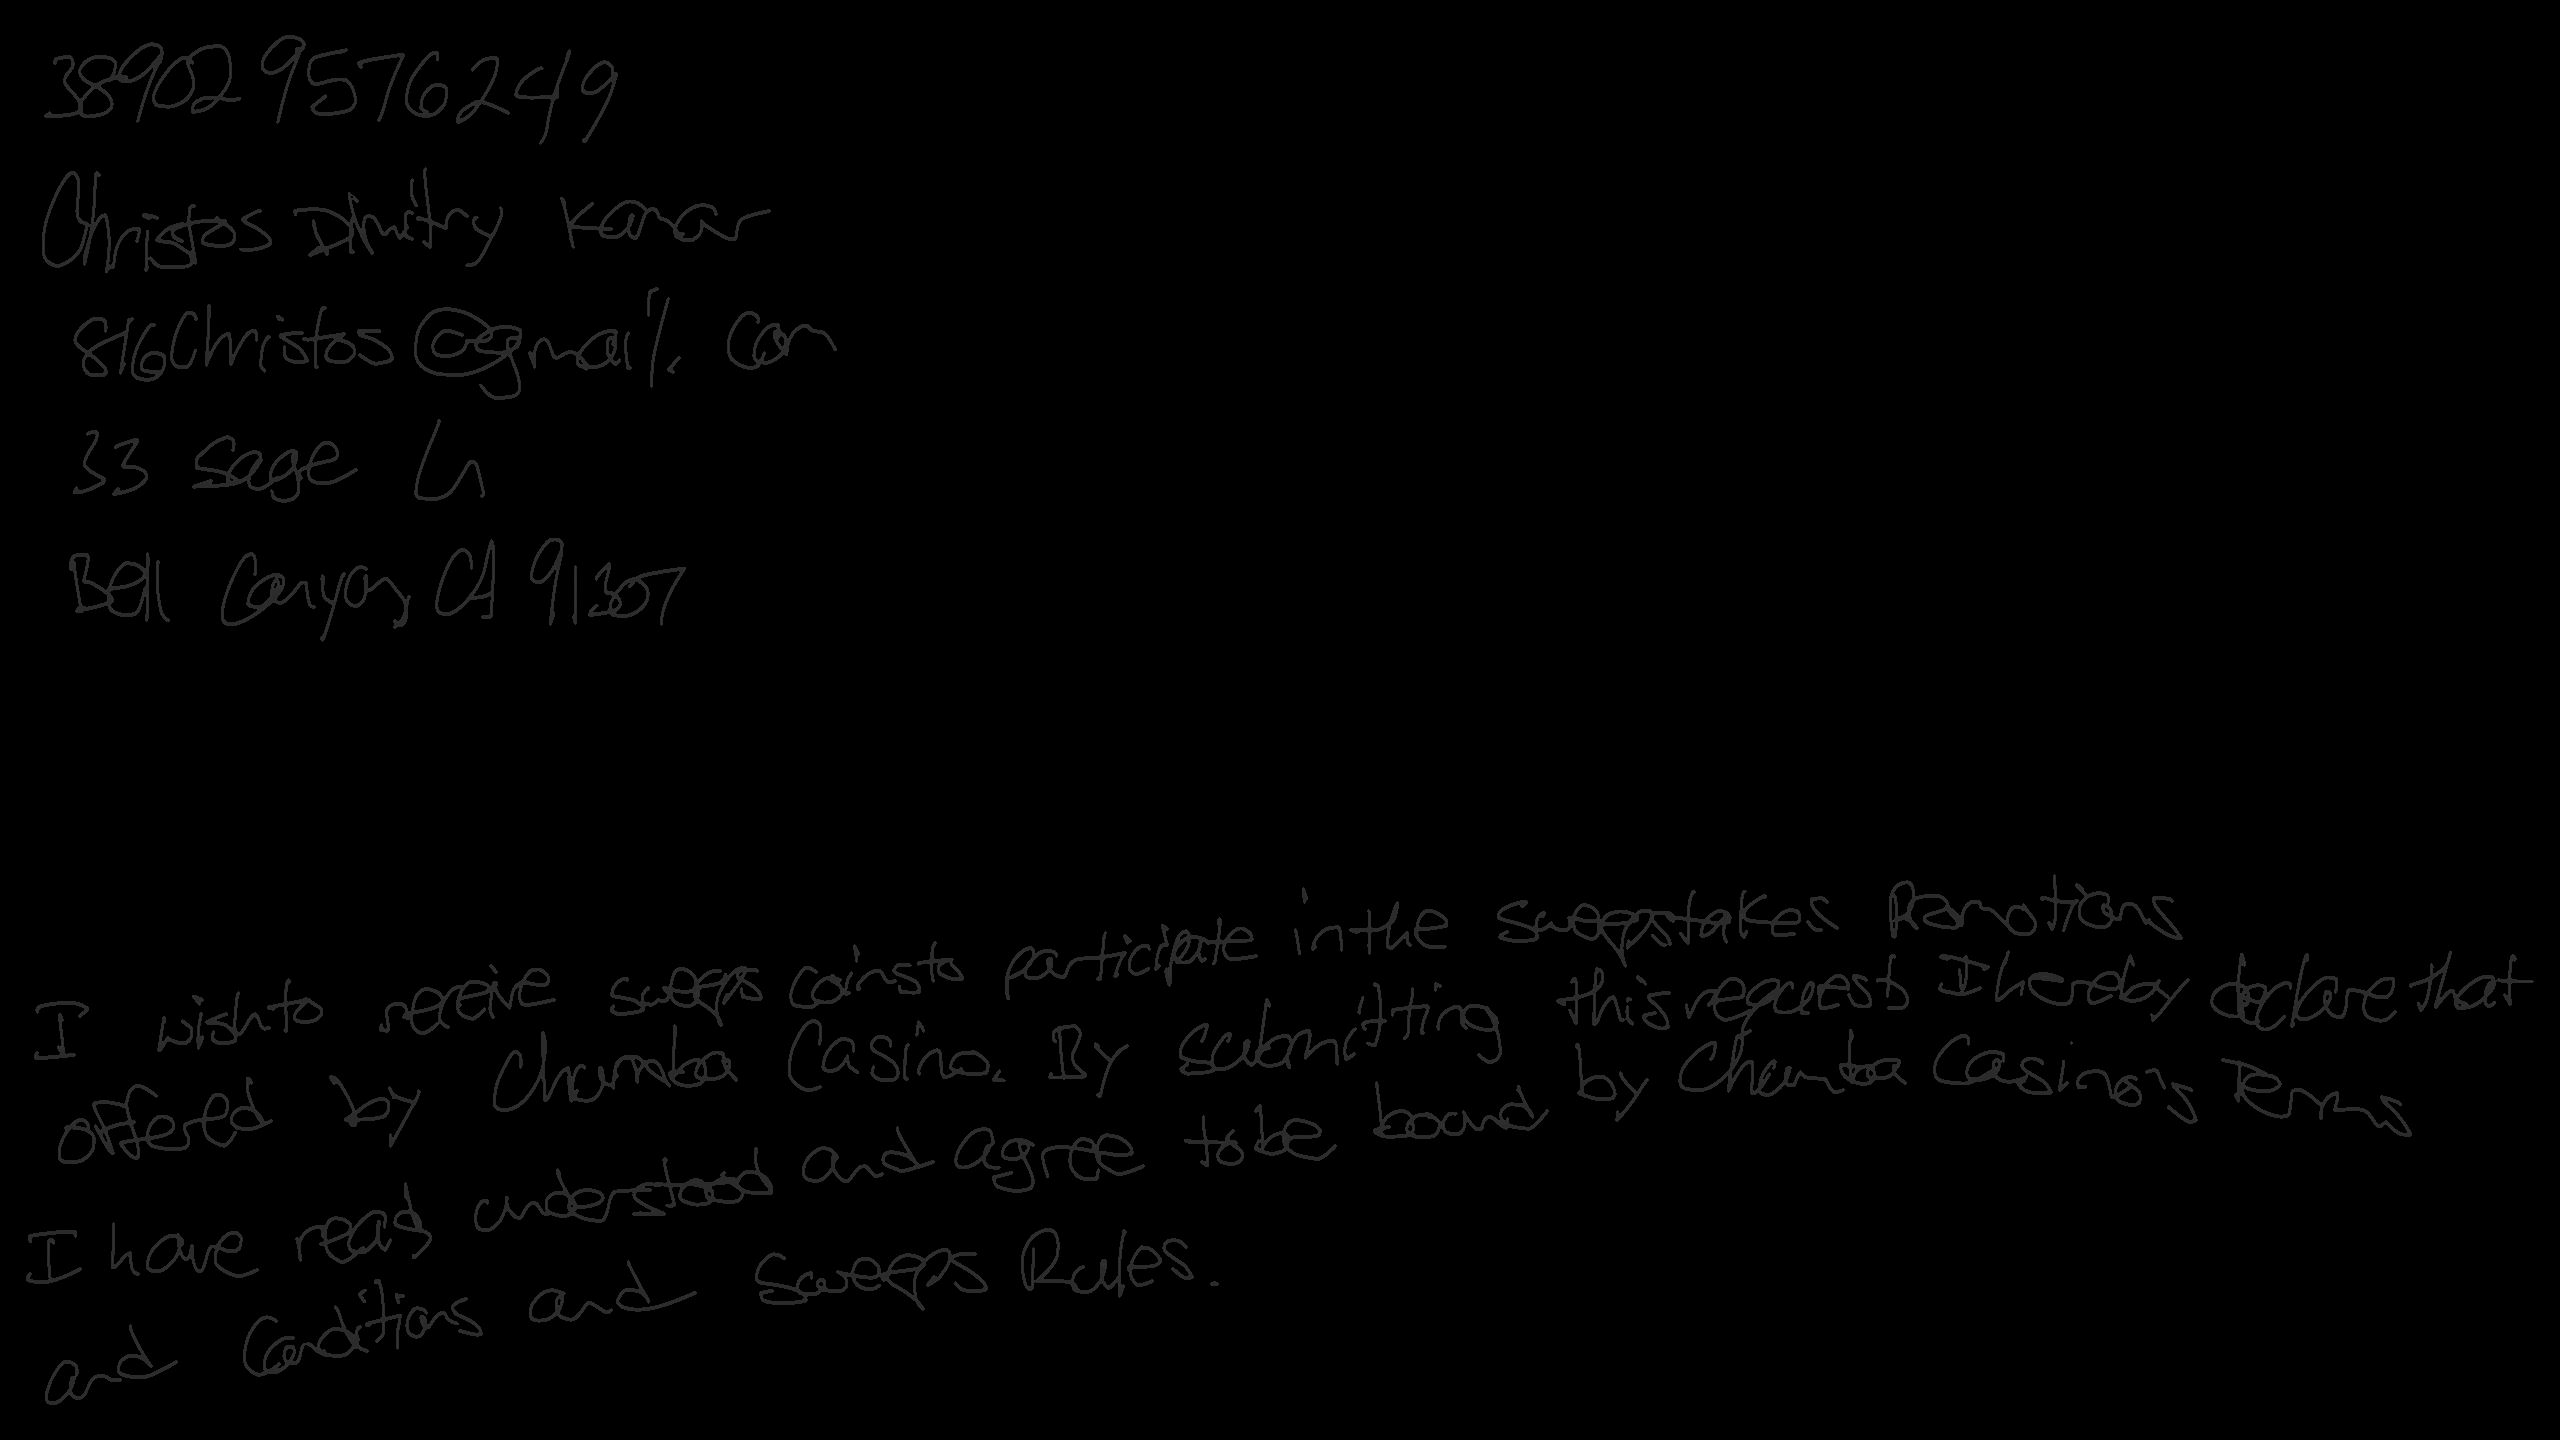 389029576249
Christos Dimitry Kanar
816Christos@gmail.com
33 Sage Ln
Bell Canyon, CA 91307
I wish to receive sweeps coins to participate in the sweepstakes Promotions
offered by Chumba Casino. By submitting this request I hereby declare that
I have read understood and agree to be bound by Chumba Casino's Terms
and Conditions and Sweeps Rules.